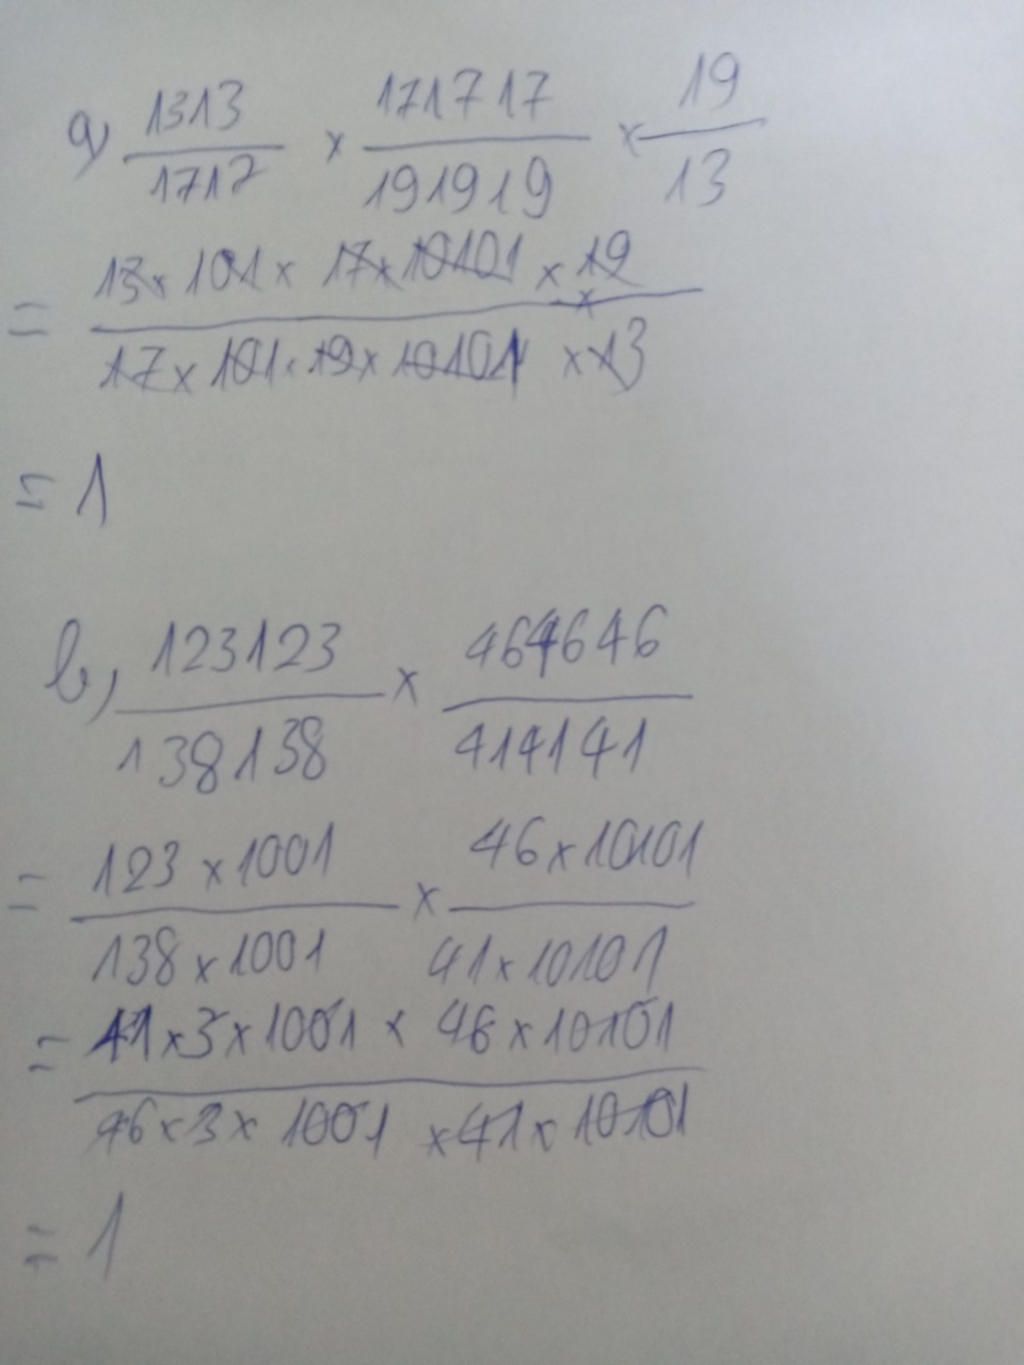 a) 1313/1717 × 171717/191919 × 19/13
= 13 × 101 × 17 × 10101 × 19 / 17 × 101 × 19 × 10101 × 13
= 1
b, 123123/138138 × 464646/414141
= 123 × 1001/138 × 1001 × 46 × 10101/41 × 10101
= 41 × 3 × 1001 × 46 × 10101 / 46 × 3 × 1001 × 41 × 10101
= 1